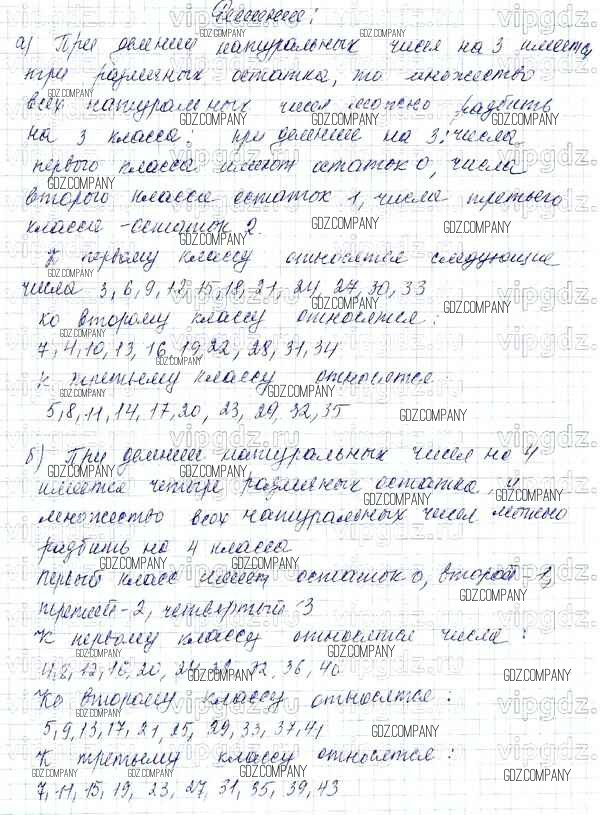 Решение:
а) При делении натуральных чисел на 3 имеется
три различных остатка, то множество
всех натуральных чисел можно разбить
на 3 класса: при делении на 3: числа
первого класса имеют остаток 0, числа
второго класса остаток 1, числа третьего
класса - остаток 2.
К первому классу относятся следующие
числа 3, 6, 9, 12, 15, 18, 21, 24, 27, 30, 33
ко второму классу относятся:
7, 4, 10, 13, 16, 19, 22, 28, 31, 34
К третьему классу относятся
5, 8, 11, 14, 17, 20, 23, 29, 32, 35
б) При делении натуральных чисел на 4
имеется четыре различных остатка и
множество всех натуральных чисел можно
разбить на 4 класса
первый класс имеет остаток 0, второй - 1,
третий - 2, четвертый - 3
К первому классу относятся числа:
4, 8, 12, 16, 20, 24, 32, 36, 40
Ко второму классу относятся:
5, 9, 13, 17, 21, 25, 29, 33, 37, 41
К третьему классу относятся:
7, 11, 15, 19, 23, 27, 31, 35, 39, 43